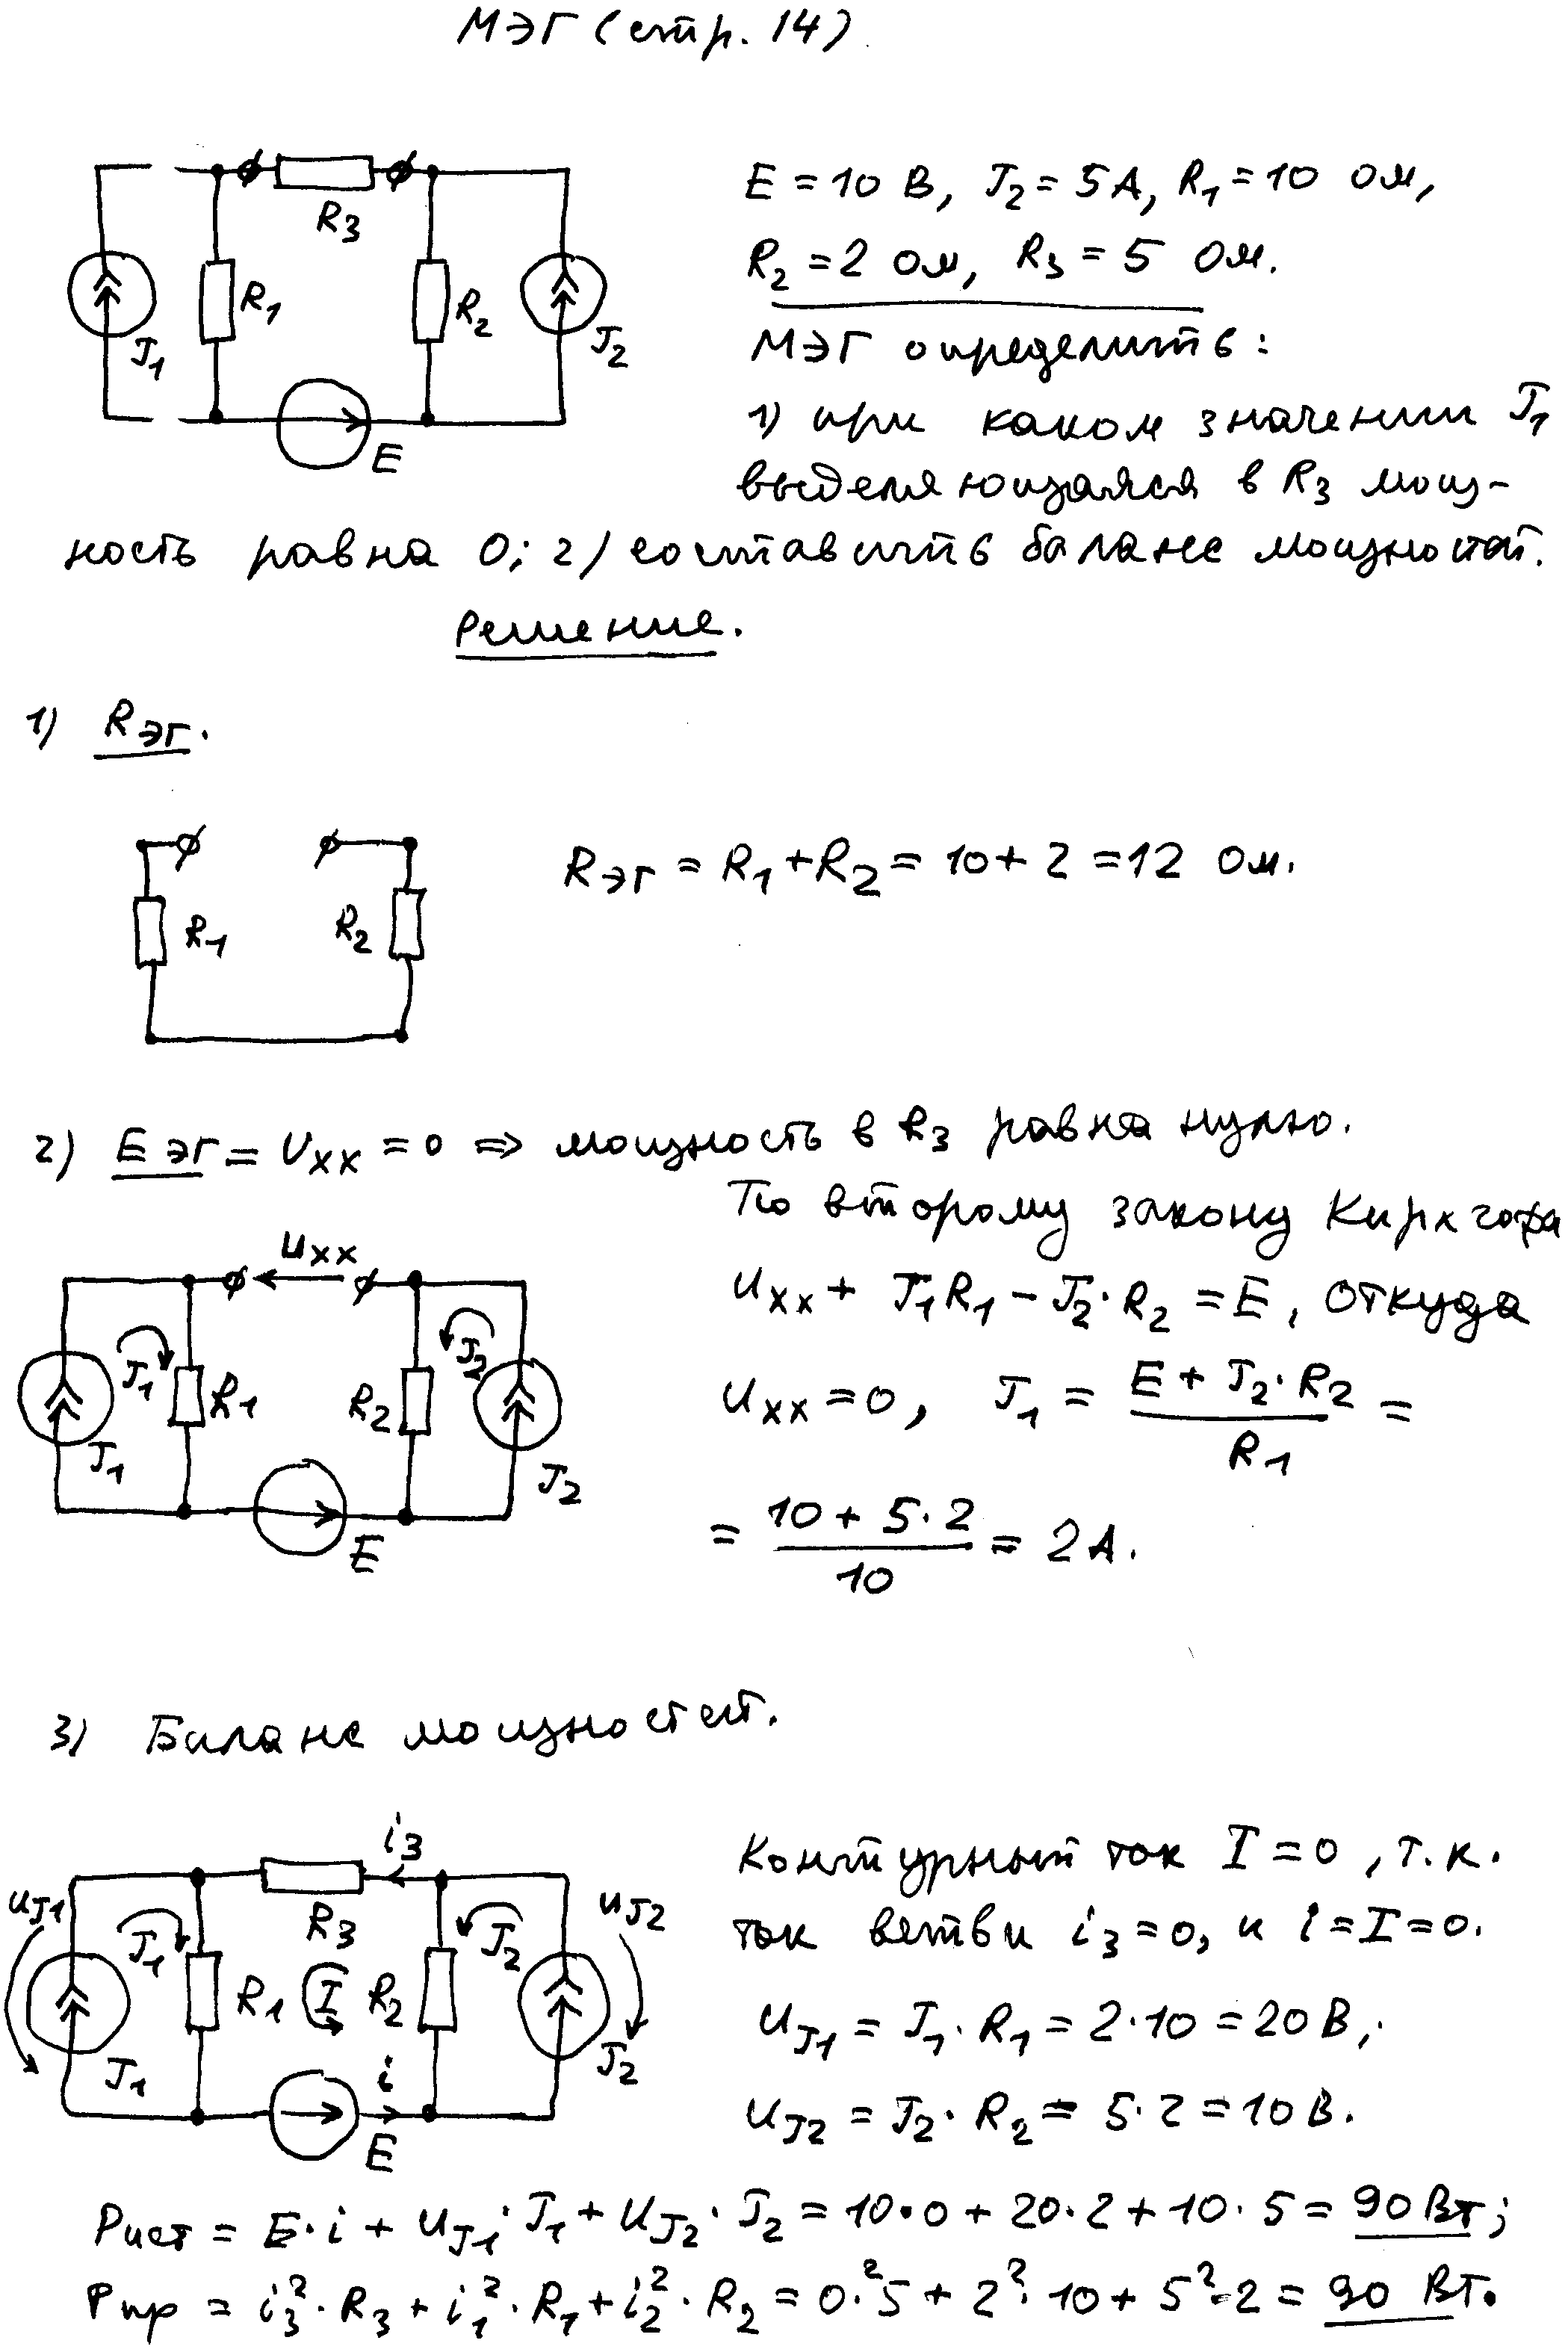 МЭГ (стр. 14)
R3
E = 10 В, J2 = 5 А, R1 = 10 ом,
R2 = 2 ом, R3 = 5 ом.
J1 R1 R2 J2
E
МЭГ определить:
1) при каком значении J1
выделяющаяся в R3 мощ-
ность равна 0; 2) составить баланс мощностей.
Решение.
1) Rэг.
R1 R2
Rэг = R1 + R2 = 10 + 2 = 12 ом.
2) Eэг = Uхх = 0 => мощность в R3 равна нулю.
По второму закону Кирхгофа
uхх
uхх + J1R1 - J2·R2 = E, откуда
J1 J2
R1 R2
J1 J2
E
uхх = 0, J1 = (E + J2·R2)/R1 =
= (10 + 5·2)/10 = 2 А.
3) Баланс мощностей.
i3
uJ1 R3 uJ2
J1 J2
R1 I R2
J1 i J2
E
Контурный ток I = 0, т.к.
ток ветви i3 = 0, и i = I = 0.
uJ1 = J1·R1 = 2·10 = 20 В;
uJ2 = J2·R2 = 5·2 = 10 В.
Pист = E·i + uJ1·J1 + uJ2·J2 = 10·0 + 20·2 + 10·5 = 90 Вт;
Pпр = i3²·R3 + i1²·R1 + i2²·R2 = 0²·5 + 2²·10 + 5²·2 = 90 Вт.